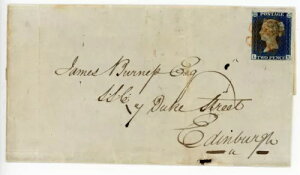 POSTAGE
TWO PENCE
James Burness Esq
SSC
7 Duke Street
Edinburgh